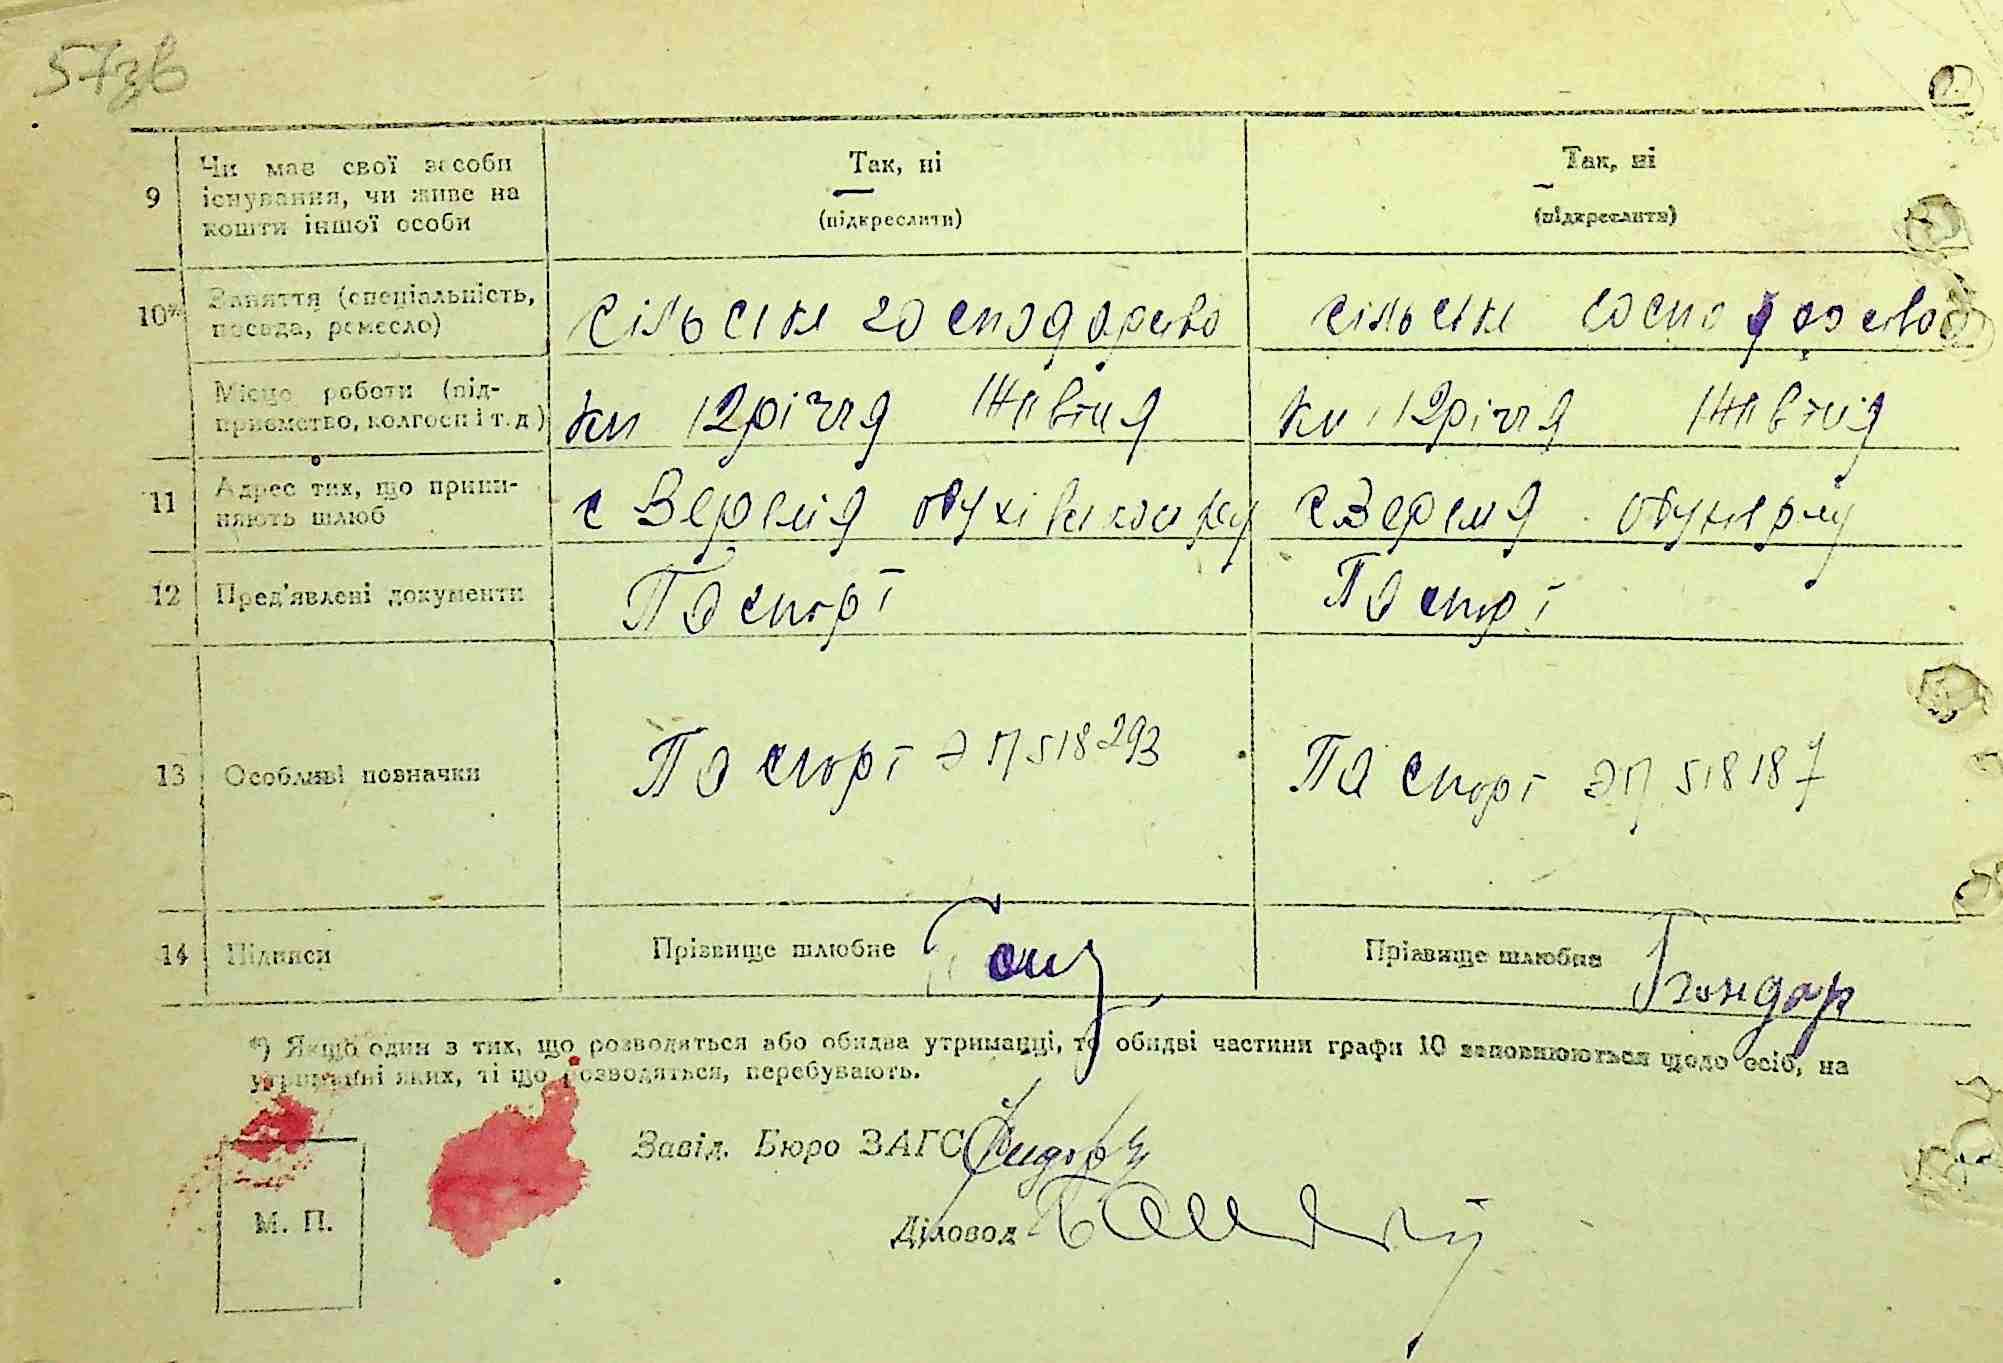 57зв
9 Чи має свої засоби існування, чи живе на кошти іншої особи
Так, ні
(підкреслити)
Так, ні
(підкреслити)
10* Заняття (спеціальність, посада, ремесло)
сільське господарство
сільське господарство
Місце роботи (підприємство, колгосп і т. д.)
12річчя Жовтня
12річчя Жовтня
11 Адрес тих, що приймняють шлюб
с Веремя
с Веремя
12 Пред'явлені документи
Паспорт
Паспорт
13 Особливі позначки
Паспорт ЭП 518293
Паспорт ЭП 518187
14 Підписи
Прізвище шлюбне
Прізвище шлюбне Бондар
*) Якщо один з тих, що розводяться або обидва утриманці, то обидві частини графи 10 заповнюються щодо осіб, на
утриманні яких, ті що розводяться, перебувають.
Завід. Бюро ЗАГС
Діловод
М. П.